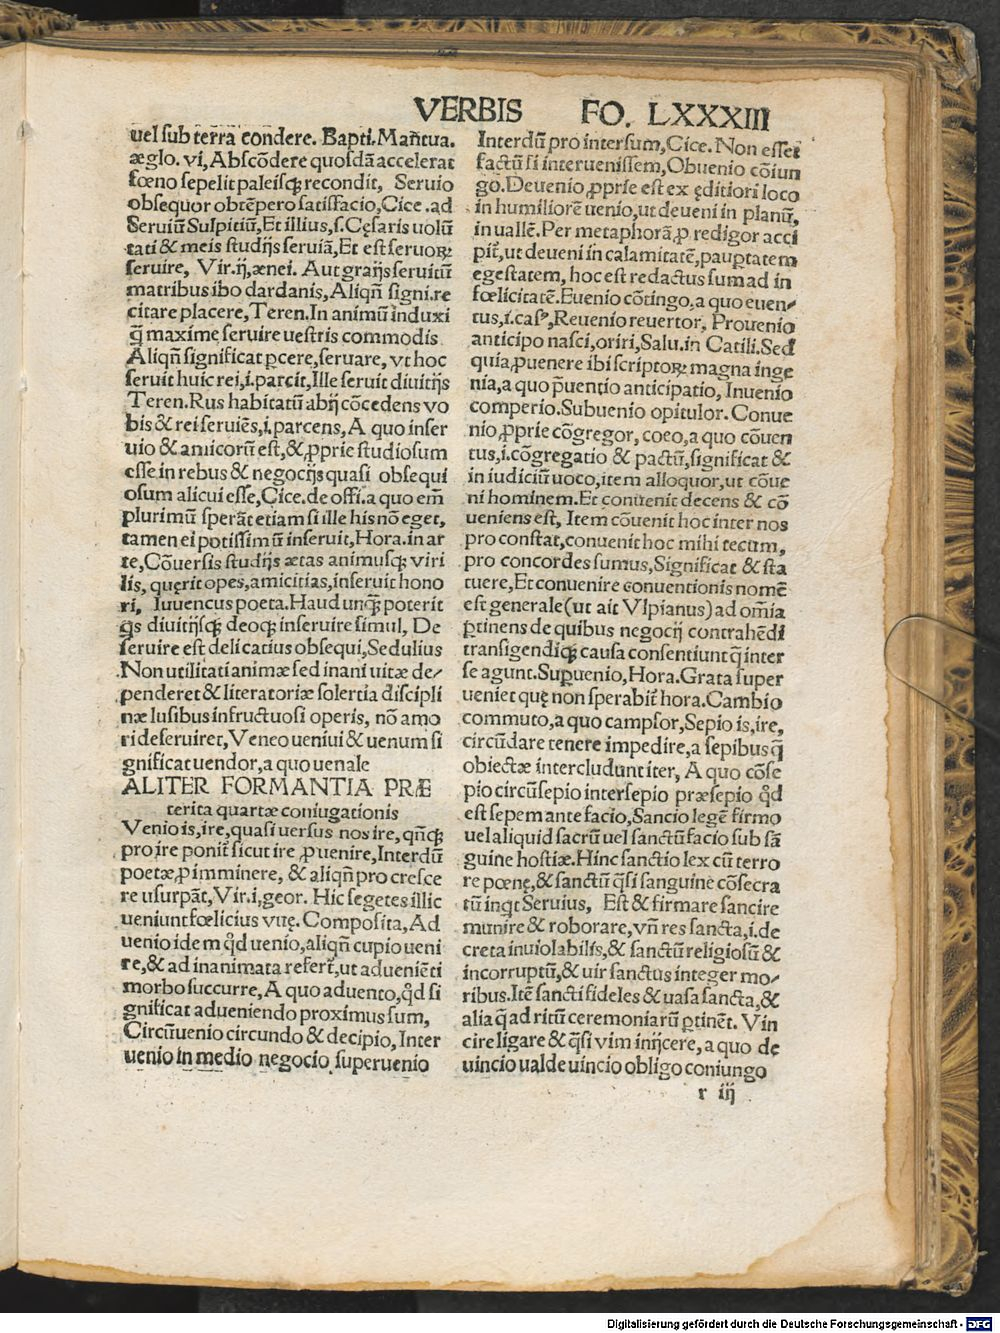 VERBIS FO. LXXXIII
uel sub terra condere. Bapti. Mañtua.
æglo. vi, Abscōdere quosdā accelerat
fœno sepelit paleisqꝫ recondit, Seruio
obsequor obtēpero satisfacio, Cice. ad
Seruiū Sulpitiū, Et illius, s. Cęsaris uolū
tati & meis studijs seruiā, Et est seruoꝝ
seruire, Vir. ij, ænei. Aut graijs seruitū
matribus ibo dardanis, Aliqñ signi. re
citare placere, Teren. In animū induxi
q̄ maxime seruire uestris commodis
Aliqñ significat ꝑcere, seruare, vt hoc
seruit huic rei, i. parcit, Ille seruit diuitijs
Teren. Rus habitatū abij cōcedens vo
bis & rei seruiēs, i. parcens, A quo inser
uio & amicorū est, & ꝓprie studiosum
esse in rebus & negocijs quasi obsequi
osum alicui esse, Cice. de offi. a quo em̄
plurimū sperāt etiam si ille his nō eget,
tamen ei potissimū inseruit, Hora. in ar
te, Cōuersis studijs ætas animusqꝫ viri
lis, quęrit opes, amicitias, inseruit hono
ri, Iuuencus poeta. Haud unq̄ poterit
q̄s diuitijsqꝫ deoqꝫ inseruire simul, De
seruire est delicatius obsequi, Sedulius
Non utilitati animæ sed inani uitæ de⸗
penderet & literatoriæ solertia discipli
næ lusibus infructuosi operis, nō amo
ri deseruiret, Veneo ueniui & uenum si
gnificat uendor, a quo uenale
ALITER FORMANTIA PRÆ
terita quartæ coniugationis
Venio is, ire, quasi uersus nos ire, qñqꝫ
pro ire ponit̄ sicut ire ꝓ uenire, Interdū
poetæ, ꝓ imminere, & aliqñ pro cresce
re usurpāt, Vir. i, geor. Hic segetes illic
ueniunt fœlicius vuę. Composita, Ad
uenio idem qd̄ uenio, aliqñ cupio ueni
re, & ad inanimata refert̄, ut adueniēti
morbo succurre, A quo aduento, qd̄ si
gnificat adueniendo proximus sum,
Circūuenio circundo & decipio, Inter
uenio in medio negocio superuenio
Interdū pro intersum, Cice. Non essei
factū si interuenissem, Obuenio cōiun
go. Deuenio ꝓprie est ex ęditiori loco
in humiliorē uenio, ut deueni in planū,
in uallē. Per metaphorā, ꝓ redigor acci
pit̄, ut deueni in calamitatē, pauꝑtatem
egestatem, hoc est redactus sum ad in
fœlicitatē. Euenio cōtingo, a quo euen⸗
tus, i. casꝰ, Reuenio reuertor, Prouenio
anticipo nasci, oriri, Salu. in Catili. Sed
quia, ꝓuenere ibi scriptoꝝ magna inge
nia, a quo p̄uentio anticipatio, Inuenio
comperio. Subuenio opitulor. Conue
nio, ꝓprie cōgregor, coeo, a quo cōuen
tus, i. cōgregatio & pactū, significat &
in iudiciū uoco, item alloquor, ut cōue
ni hominem. Et conuenit decens & cō
ueniens est, Item cōuenit hoc inter nos
pro constat, conuenit hoc mihi tecum,
pro concordes sumus, Significat & sta
tuere, Et conuenire conuentionis nomē
est generale (ut ait Vlpianus) ad om̄ia
ꝑtinens de quibus negocij contrahēdi
transigendiqꝫ causa consentiunt q̄ inter
se agunt. Supuenio, Hora. Grata super
ueniet quę non sperabit̄ hora. Cambio
commuto, a quo campsor, Sepio is, ire,
circūdare tenere impedire, a sepibus q̄
obiectæ intercludunt iter, A quo cōse
pio circūsepio intersepio præsepio qd̄
est sepem ante facio, Sancio legē firmo
uel aliquid sacrū uel sanctū facio sub sā
guine hostiæ. Hinc sanctio lex cū terro
re pœnę, & sanctū q̄si sanguine cōsecra
tū inq̄t Seruius, Est & firmare sancire
munire & roborare, vñ res sancta, i. de
creta inuiolabilis, & sanctū religiosū &
incorruptū, & uir sanctus integer mo⸗
ribus. Itē sancti fideles & uasa sancta, &
alia q̄ ad ritū ceremoniarū ꝑtinēt. Vin
cire ligare & q̄si vim inijcere, a quo de
uincio ualde uincio obligo coniungo
r iij
Digitalisierung gefördert durch die Deutsche Forschungsgemeinschaft - DFG